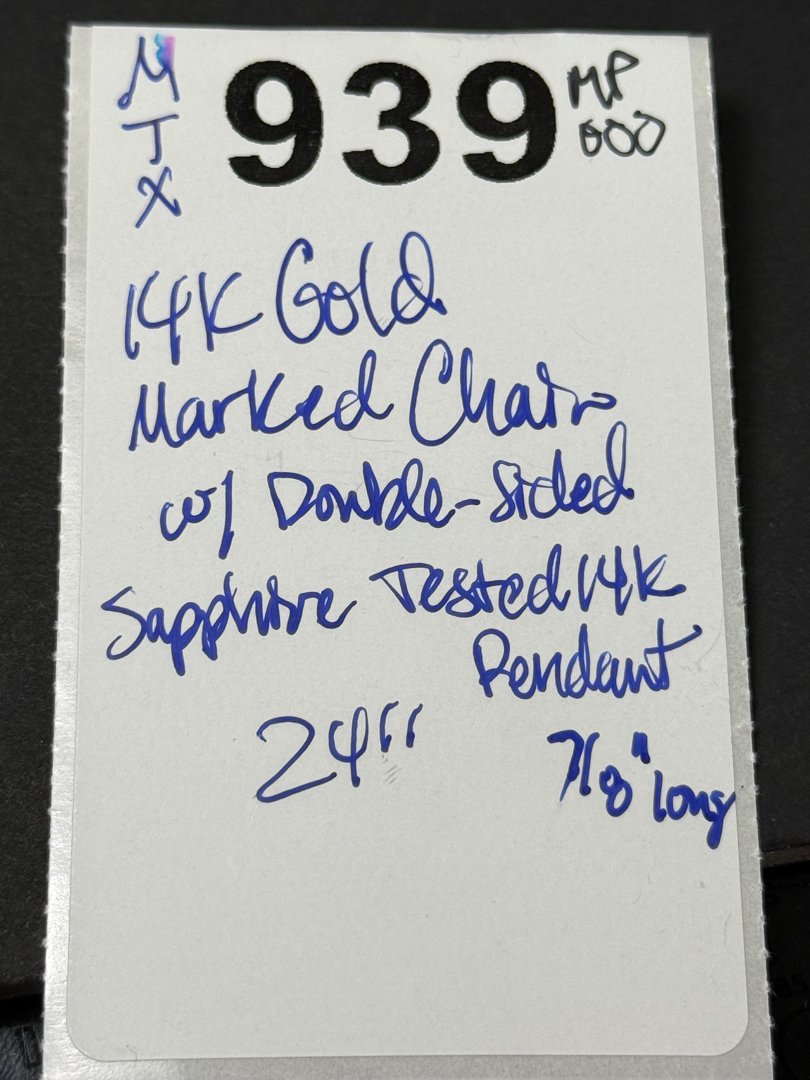 M
J
X
939
MP
000
14K Gold
Marked Chain
w/ Double-Sided
Sapphire Tested 14K
Pendant
24"
7/8" long